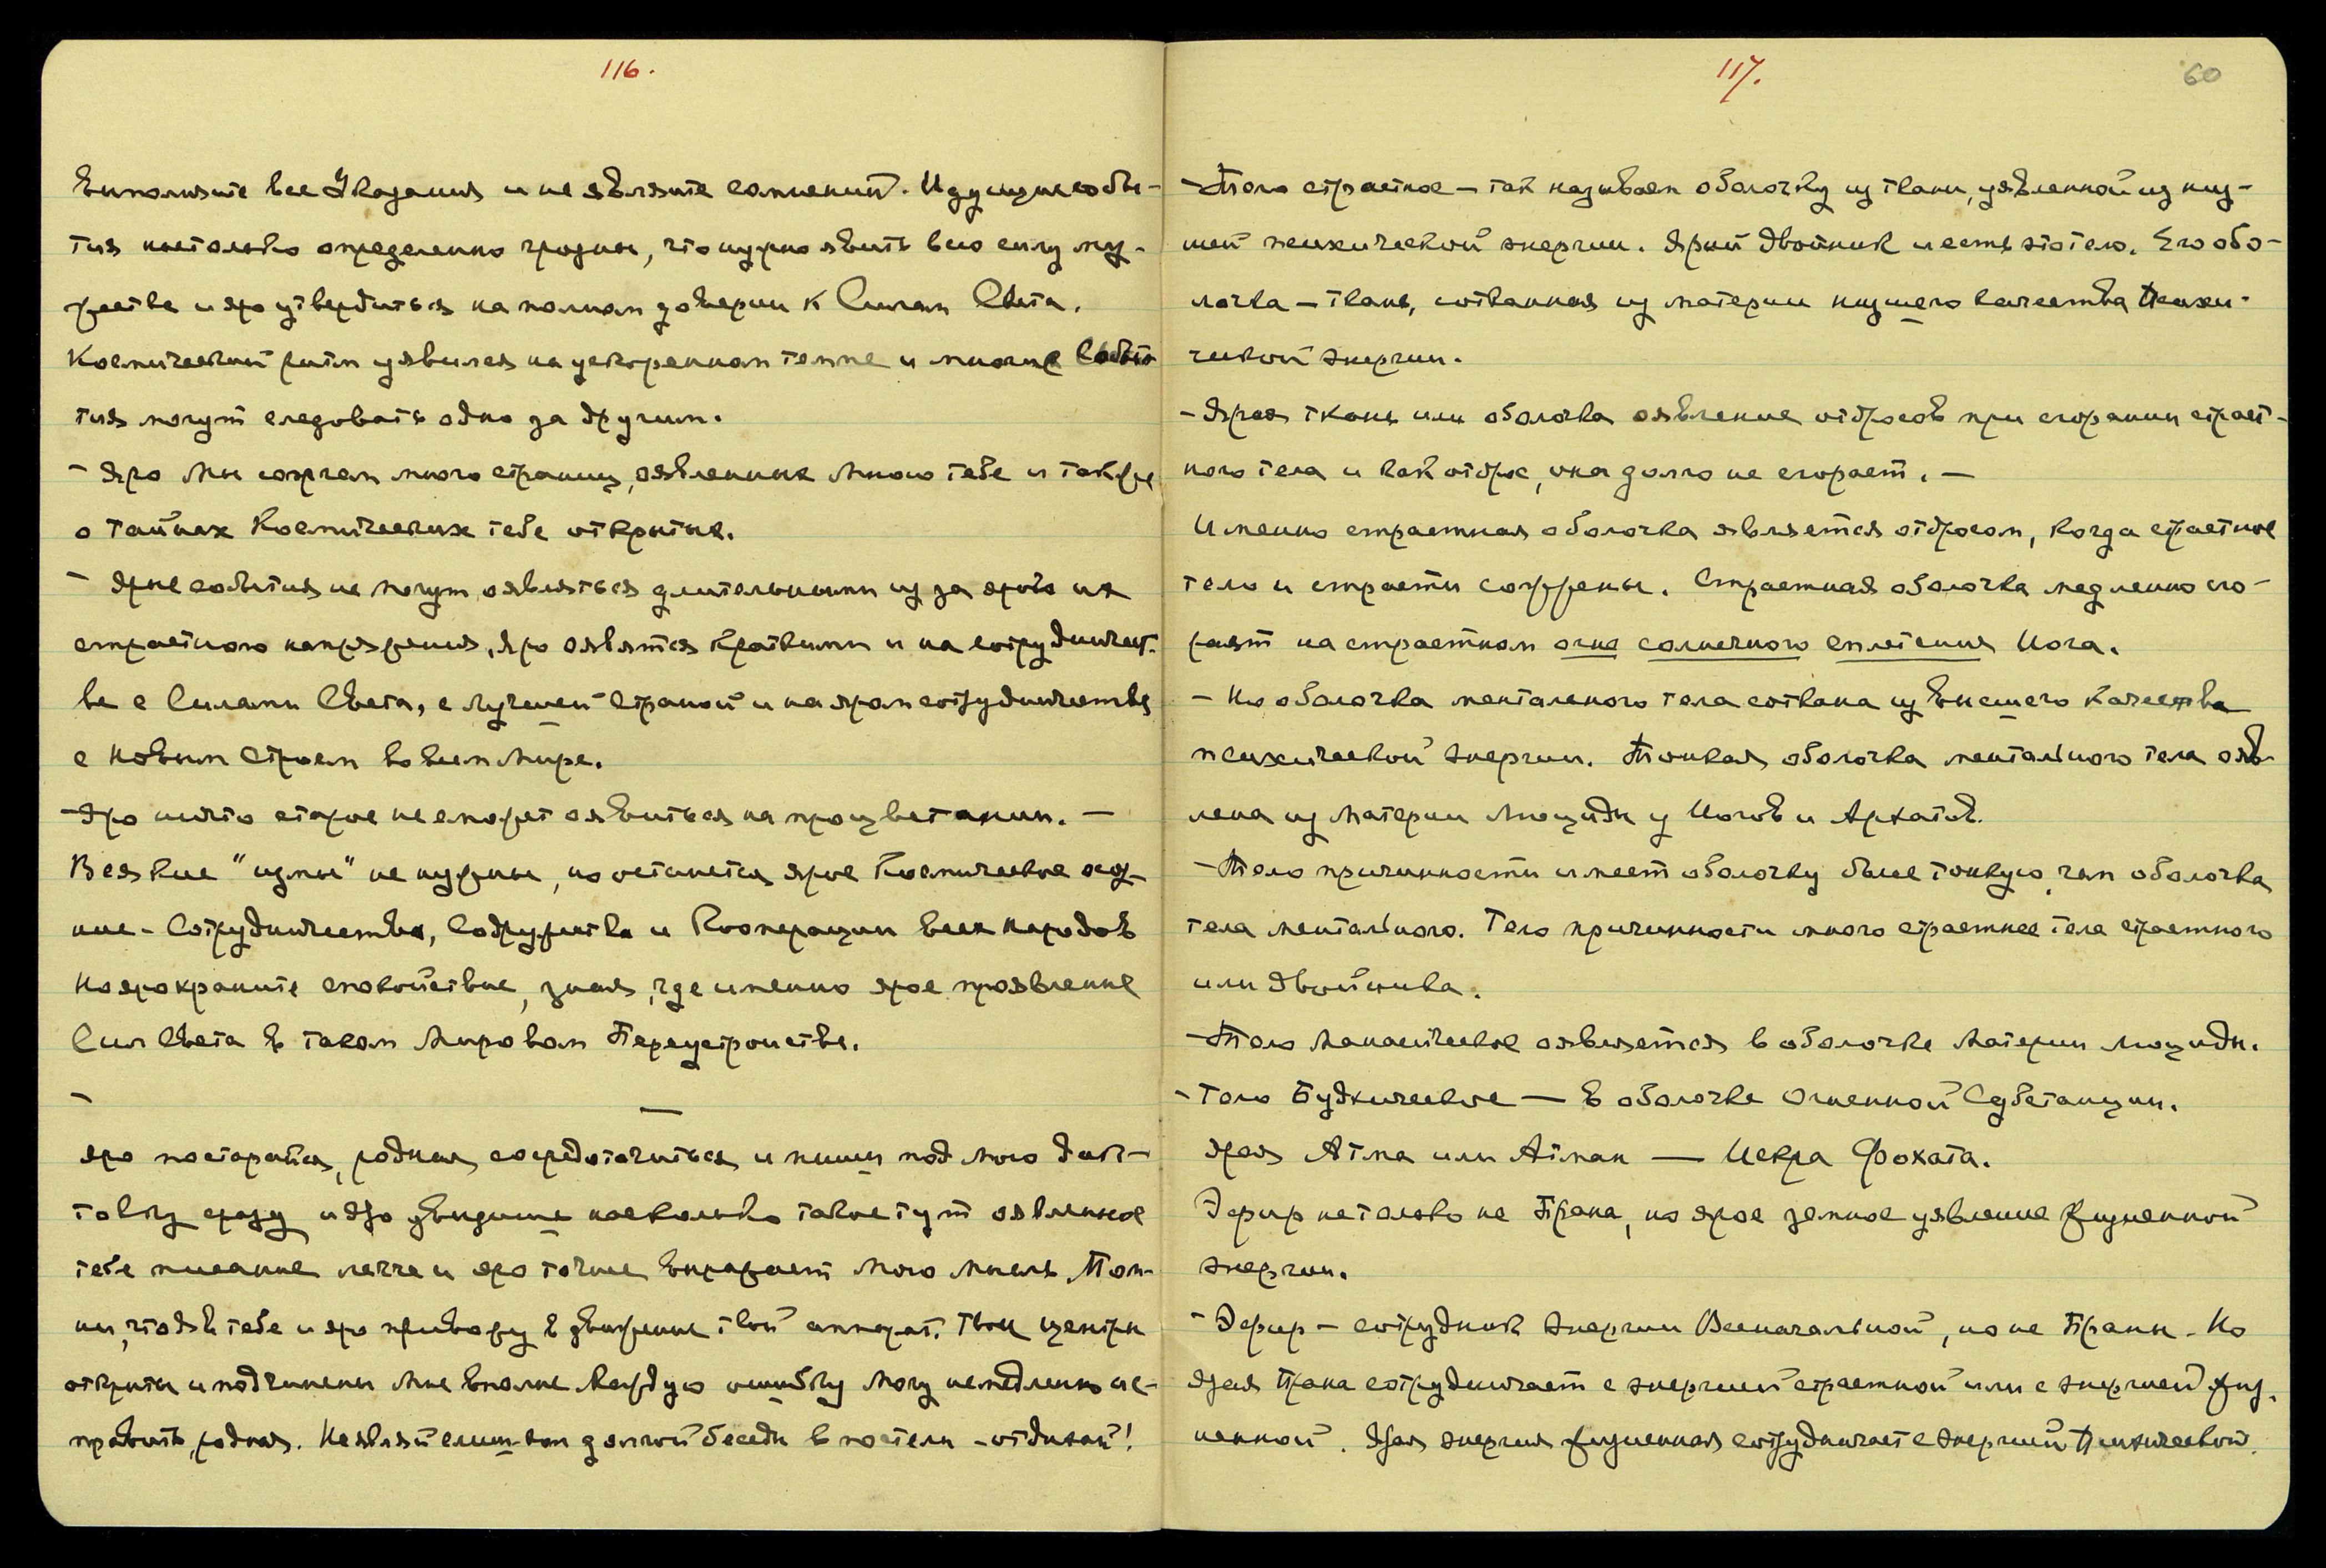 116.
Выполните все Указания и не являйте сомнений. Идущие собы-
тия настолько определенно грозны, что нужно явить всю силу му-
жества и яро утвердиться на полном доверии к Силам Света.
Космический ритм уявился на ускоренном темпе и многие Собы-
тия могут следовать одно за другим.
- Яро Мы сожгем много страниц, оявленных Мною тебе и также
о тайнах Космических тебе открытых.
- Ярые события не могут оявляться длительными из за ярого их
страстного напряжения, яро оявятся краткими и на сотрудничест-
ве с Силами Света, с лучшей Страной и на яром сотрудничестве
с Новым Строем во всем Мире.
- Яро ничто старое не сможет оявиться на процветании. —
Всякие "измы" не нужны, но останется ярое Космическое
ние - Сотрудничества, Содружества и Кооперации всех народов
Но яро храните спокойствие, зная, где именно ярое проявление
Сил Света в таком Мировом Переустройстве.
-
—
Яро постарайся, родная, сосредоточиться и пиши под Мою дик-
товку сразу и яро увидишь насколько такое тут оявленное
тебе писание легче и яро точнее выражает Мою Мысль. Пом-
ни, что Я в тебе и яро привожу в движение твой аппарат. Твои центры
открыты и подчинены Мне вполне каждую ошибку Могу немедленно ис-
править, родная. Не являй слишком долгой беседы в постели - отдыхай!
117.
60
- Тело страстное - так называем оболочку из ткани, уявленной из низ-
шей психической энергии. Ярый двойник и есть это тело. Его обо-
лочка - ткань, сотканная из материи низшего качества Психи-
ческой энергии.
- Ярая ткань или оболочка оявление отбросов при сгорании страст-
ного тела и как отброс, она долго не сгорает. —
Именно страстная оболочка является отбросом, когда страстное
тело и страсти сожжены. Страстная оболочка медленно сго-
рает на страстном огне солнечного сплетения Йога.
- Но оболочка ментального тела соткана из высшего качества
психической энергии. Тонкая оболочка ментального тела ояв-
лена из Материи Люциды у Йогов и Архатов.
- Тело причинности имеет оболочку более тонкую, чем оболочка
тела ментального. Тело причинности много страстнее тела страстного
или двойника.
- Тело Манасическое оявляется в оболочке Материи Люциды.
- Тело Будхическое — в оболочке Огненной Субстанции.
Ярая Атма или Атман — Искра Фохата.
Эфир не только не Прана, но ярое земное уявление жизненной
энергии.
- Эфир - сотрудник Энергии Всеначальной, но не Праны. Но
Ярая Прана сотрудничает с энергией страстной или с энергией жиз-
ненной. Ярая энергия жизненная сотрудничает с Энергией Психической.